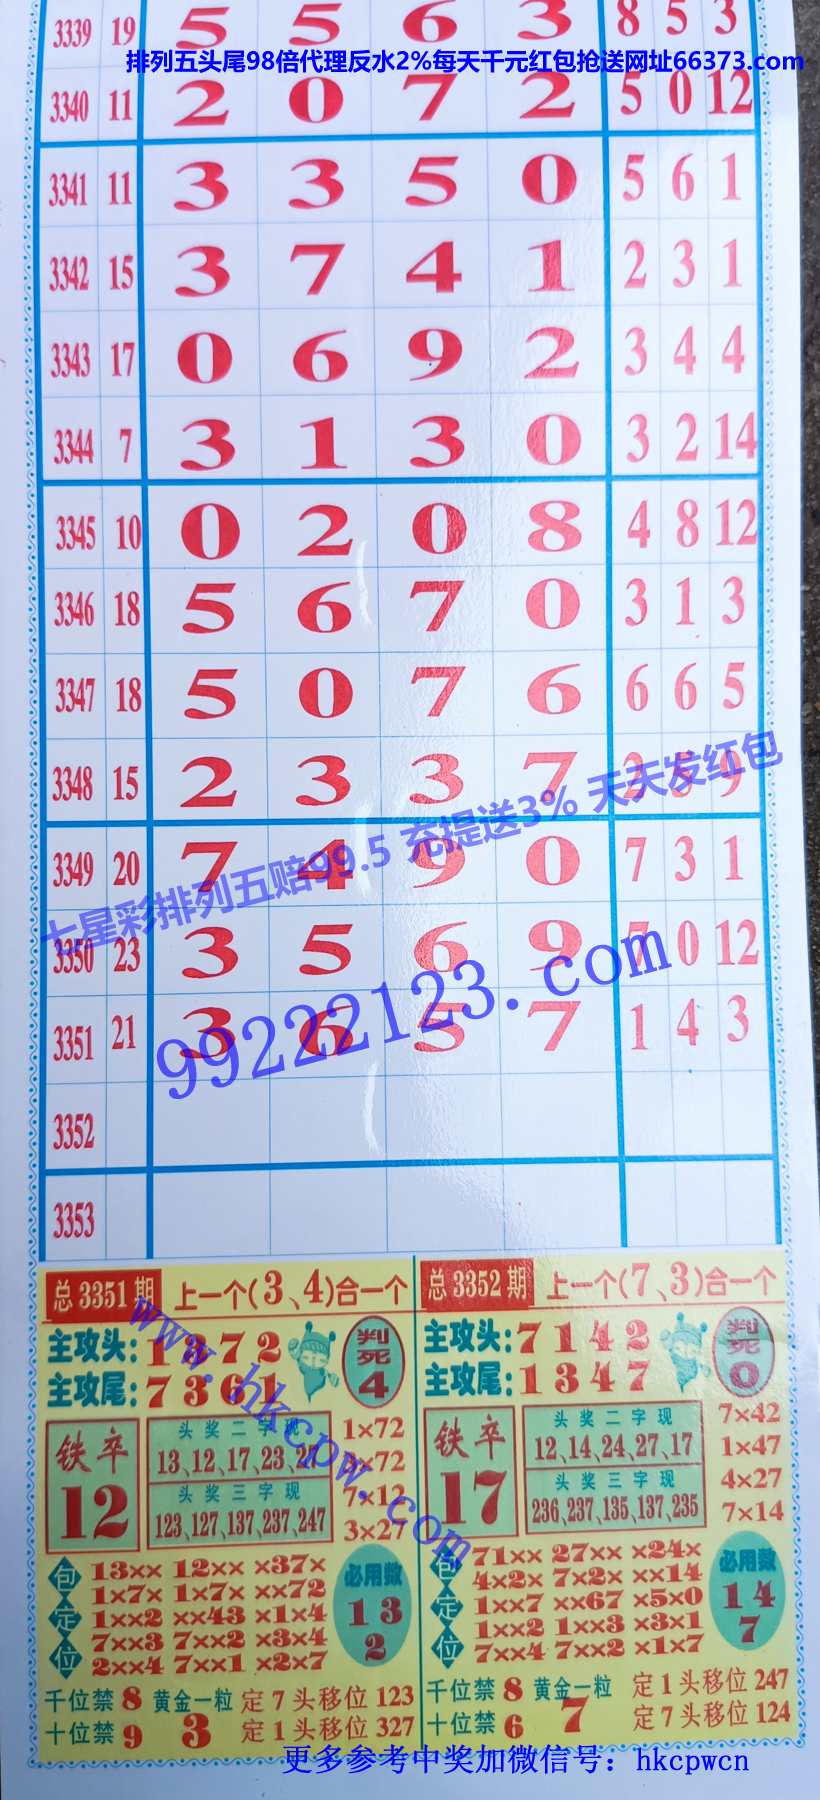 3339 19 5 5 6 3 8 5 3
排列五头尾98倍代理反水2%每天千元红包抢送网址66373.com
3340 11 2 0 7 2 5 0 12
3341 11 3 3 5 0 5 6 1
3342 15 3 7 4 1 2 3 1
3343 17 0 6 9 2 3 4 4
3344 7 3 1 3 0 3 2 14
3345 10 0 2 0 8 4 8 12
3346 18 5 6 7 0 3 1 3
3347 18 5 0 7 6 6 6 5
3348 15 2 3 3 7 2 9
七星彩排列五赔99.5 充提送3% 天天发红包
3349 20 7 4 9 0 7 3 1
3350 23 3 5 6 9 7 0 12
99222123.com
3351 21 3 6 5 7 1 4 3
3352
3353
总3351期 上一个(3、4)合一个
主攻头:1 3 7 2
主攻尾:7 3 6 1
判死4
铁卒12
头奖二字现
13、12、17、23、27
头奖三字现
123、127、137、237、247
1×72
×72
7×12
3×27
包定位
13×× 12×× ×37×
1×7× 1×7× ××72
1××2 ××43 ×1×4
7××3 7××2 ×3×4
2××4 7××1 ×2×7
必用数
1 3
2
千位禁8 黄金一粒 定7头移位123
十位禁9 3 定1头移位327
总3352期 上一个(7、3)合一个
主攻头:7 1 4 2
主攻尾:1 3 4 7
判死0
铁卒17
头奖二字现
12、14、24、27、17
头奖三字现
236、237、135、137、235
7×42
1×47
4×27
7×14
包定位
71×× 27×× ×24×
4×2× 7×2× ××14
1××7 ××67 ×5×0
1××2 1××3 ×3×1
7××4 7××2 ×1×7
必用数
1 4
7
千位禁8 黄金一粒 定1头移位247
十位禁6 7 定7头移位124
www.hkcpw.com
更多参考中奖加微信号: hkcpwcn